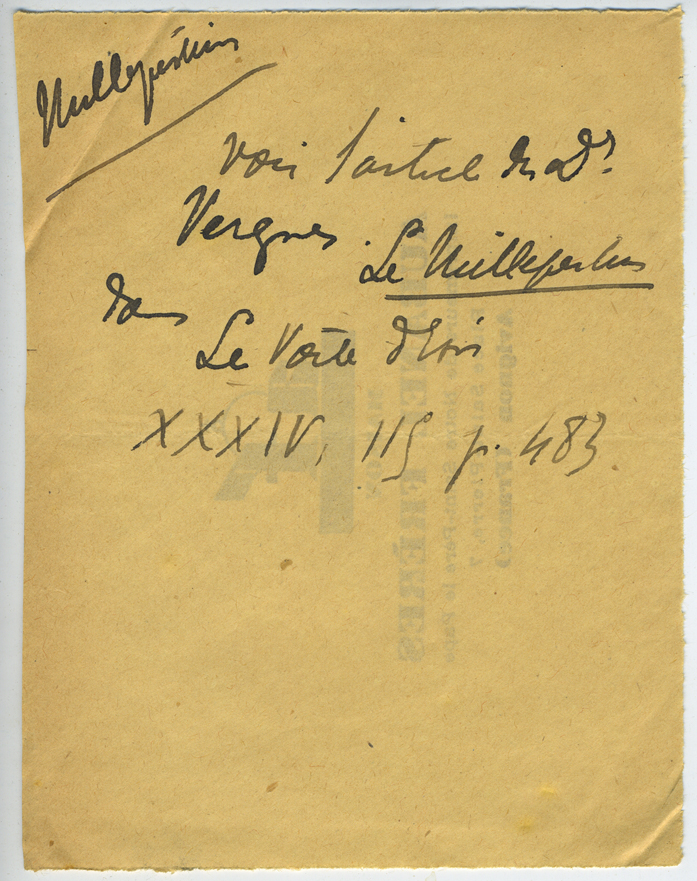 Millepertuis
Voir l'article du Dr
Vergnes. Le Millepertuis
dans
Le Voile d'Isis
XXXIV, 115 p. 483.